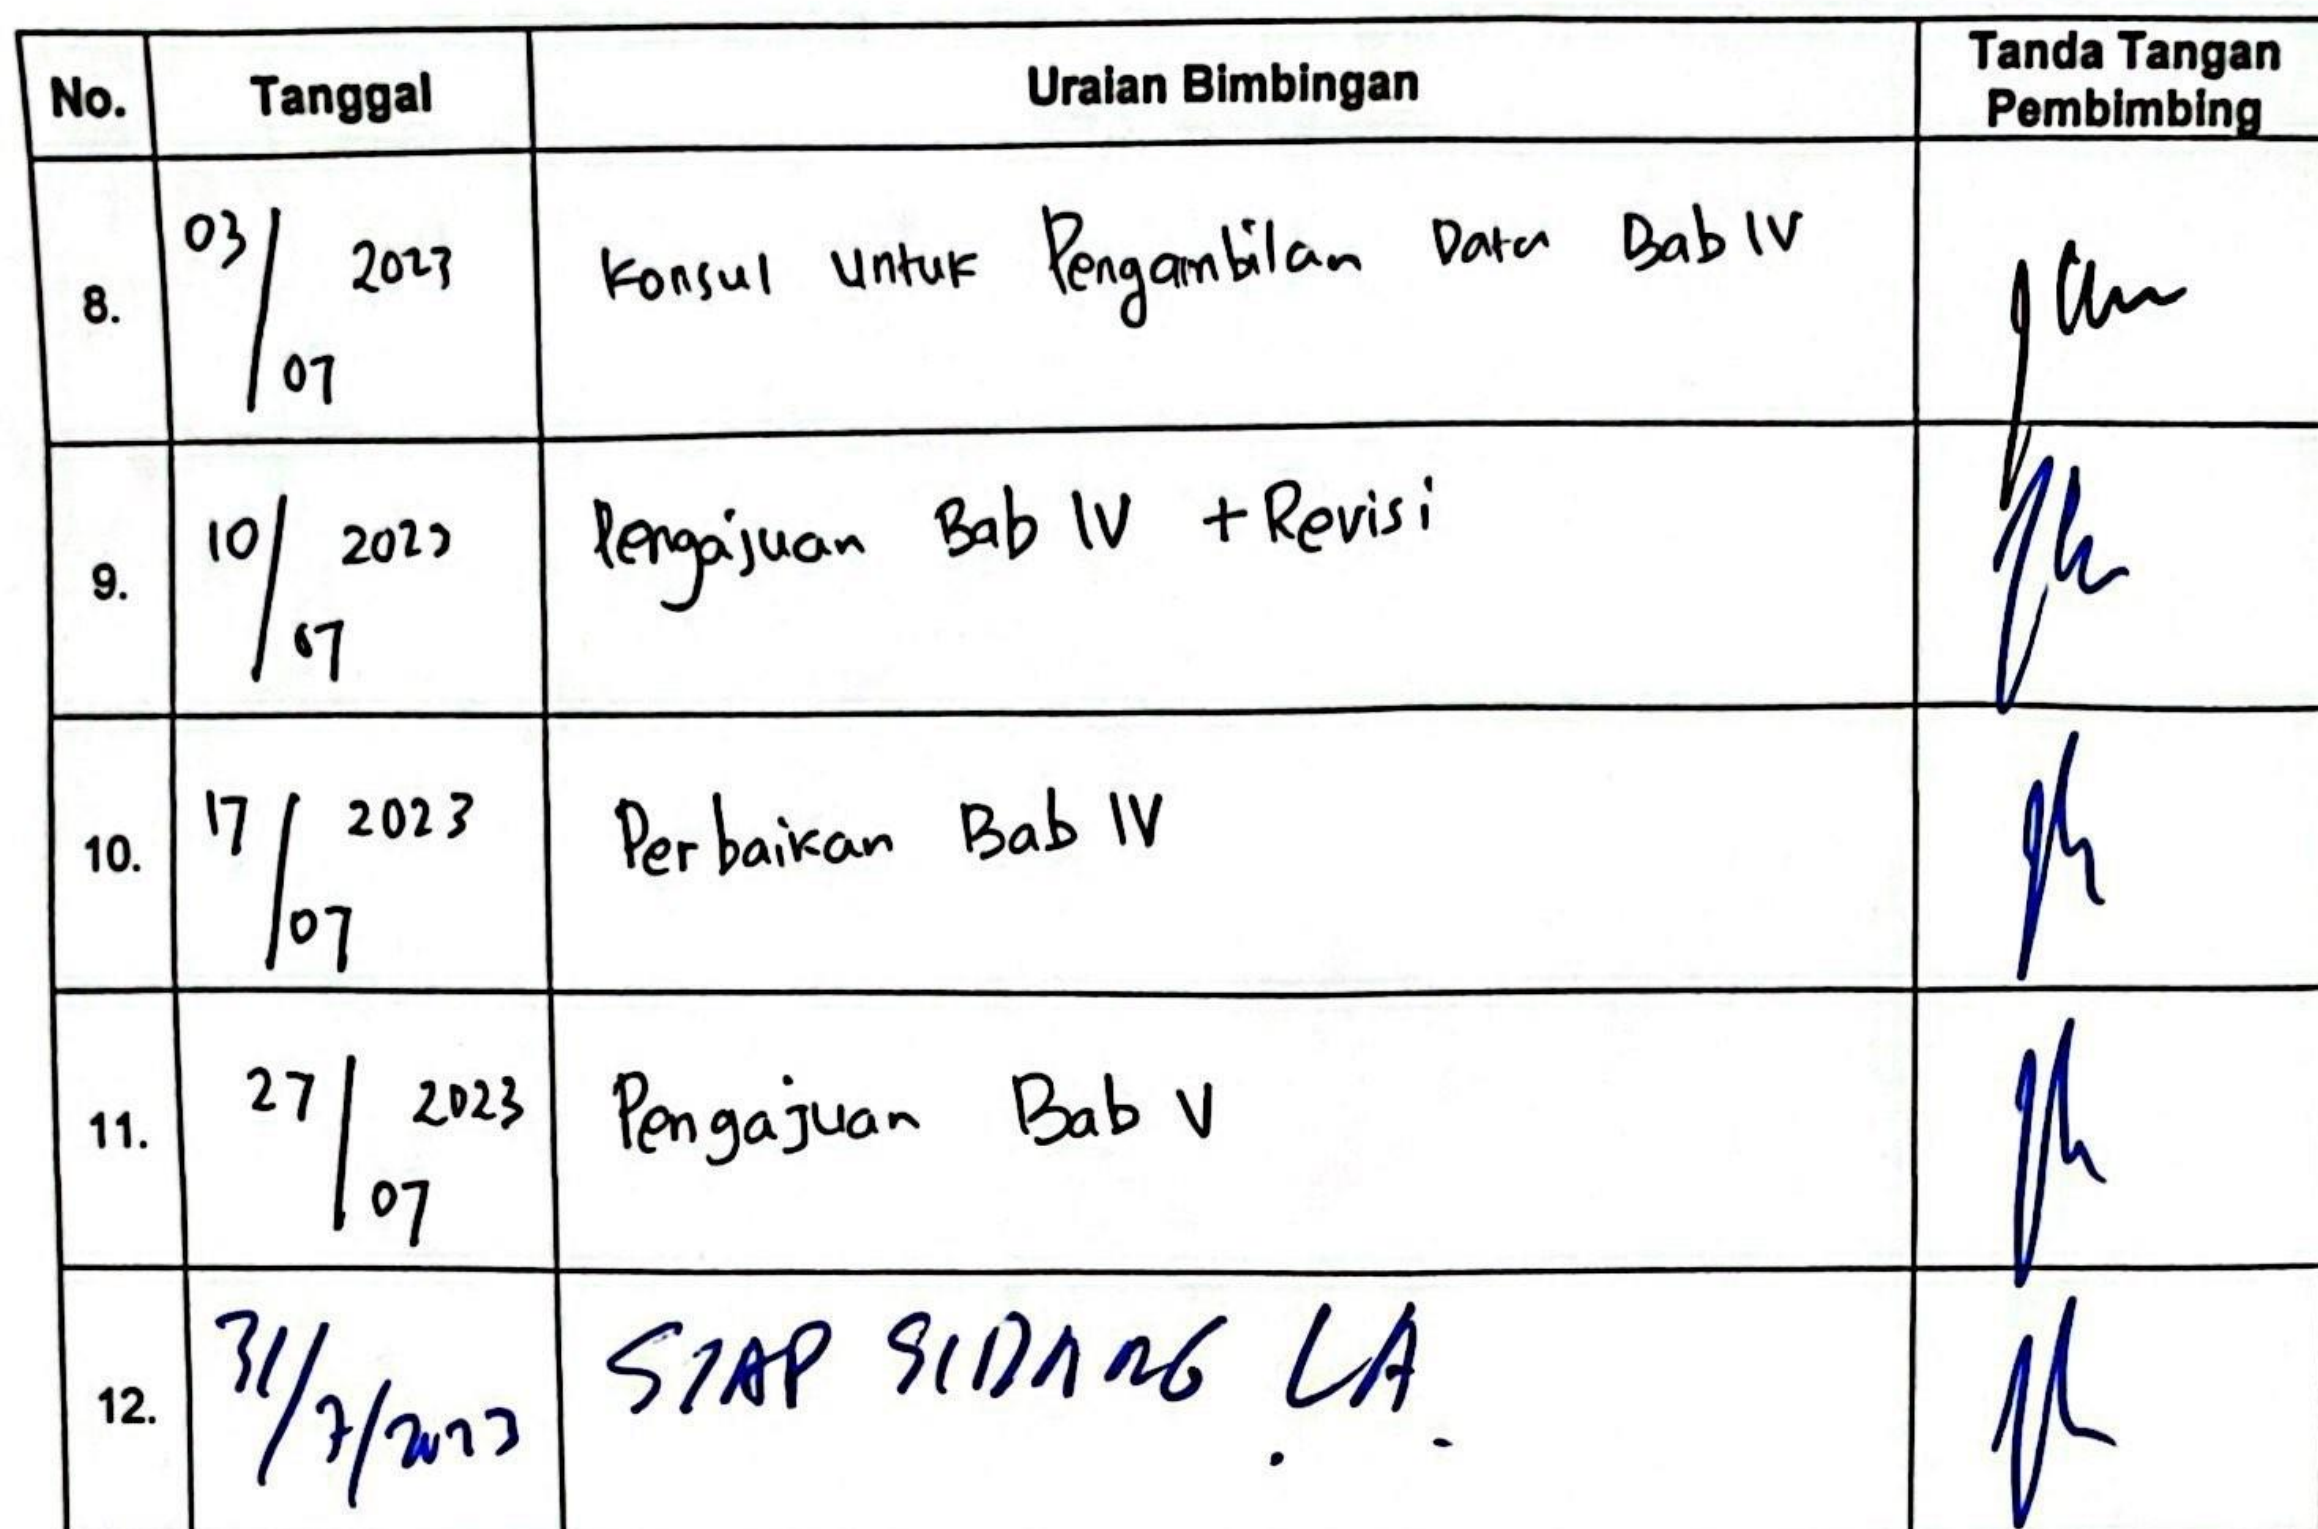 No. Tanggal Uraian Bimbingan Tanda Tangan Pembimbing
8. 03/07 2023 Konsul untuk Pengambilan Data Bab IV
9. 10/07 2023 Pengajuan Bab IV + Revisi
10. 17/07 2023 Perbaikan Bab IV
11. 27/07 2023 Pengajuan Bab V
12. 31/7/2023 SIAP SIDANG LA.